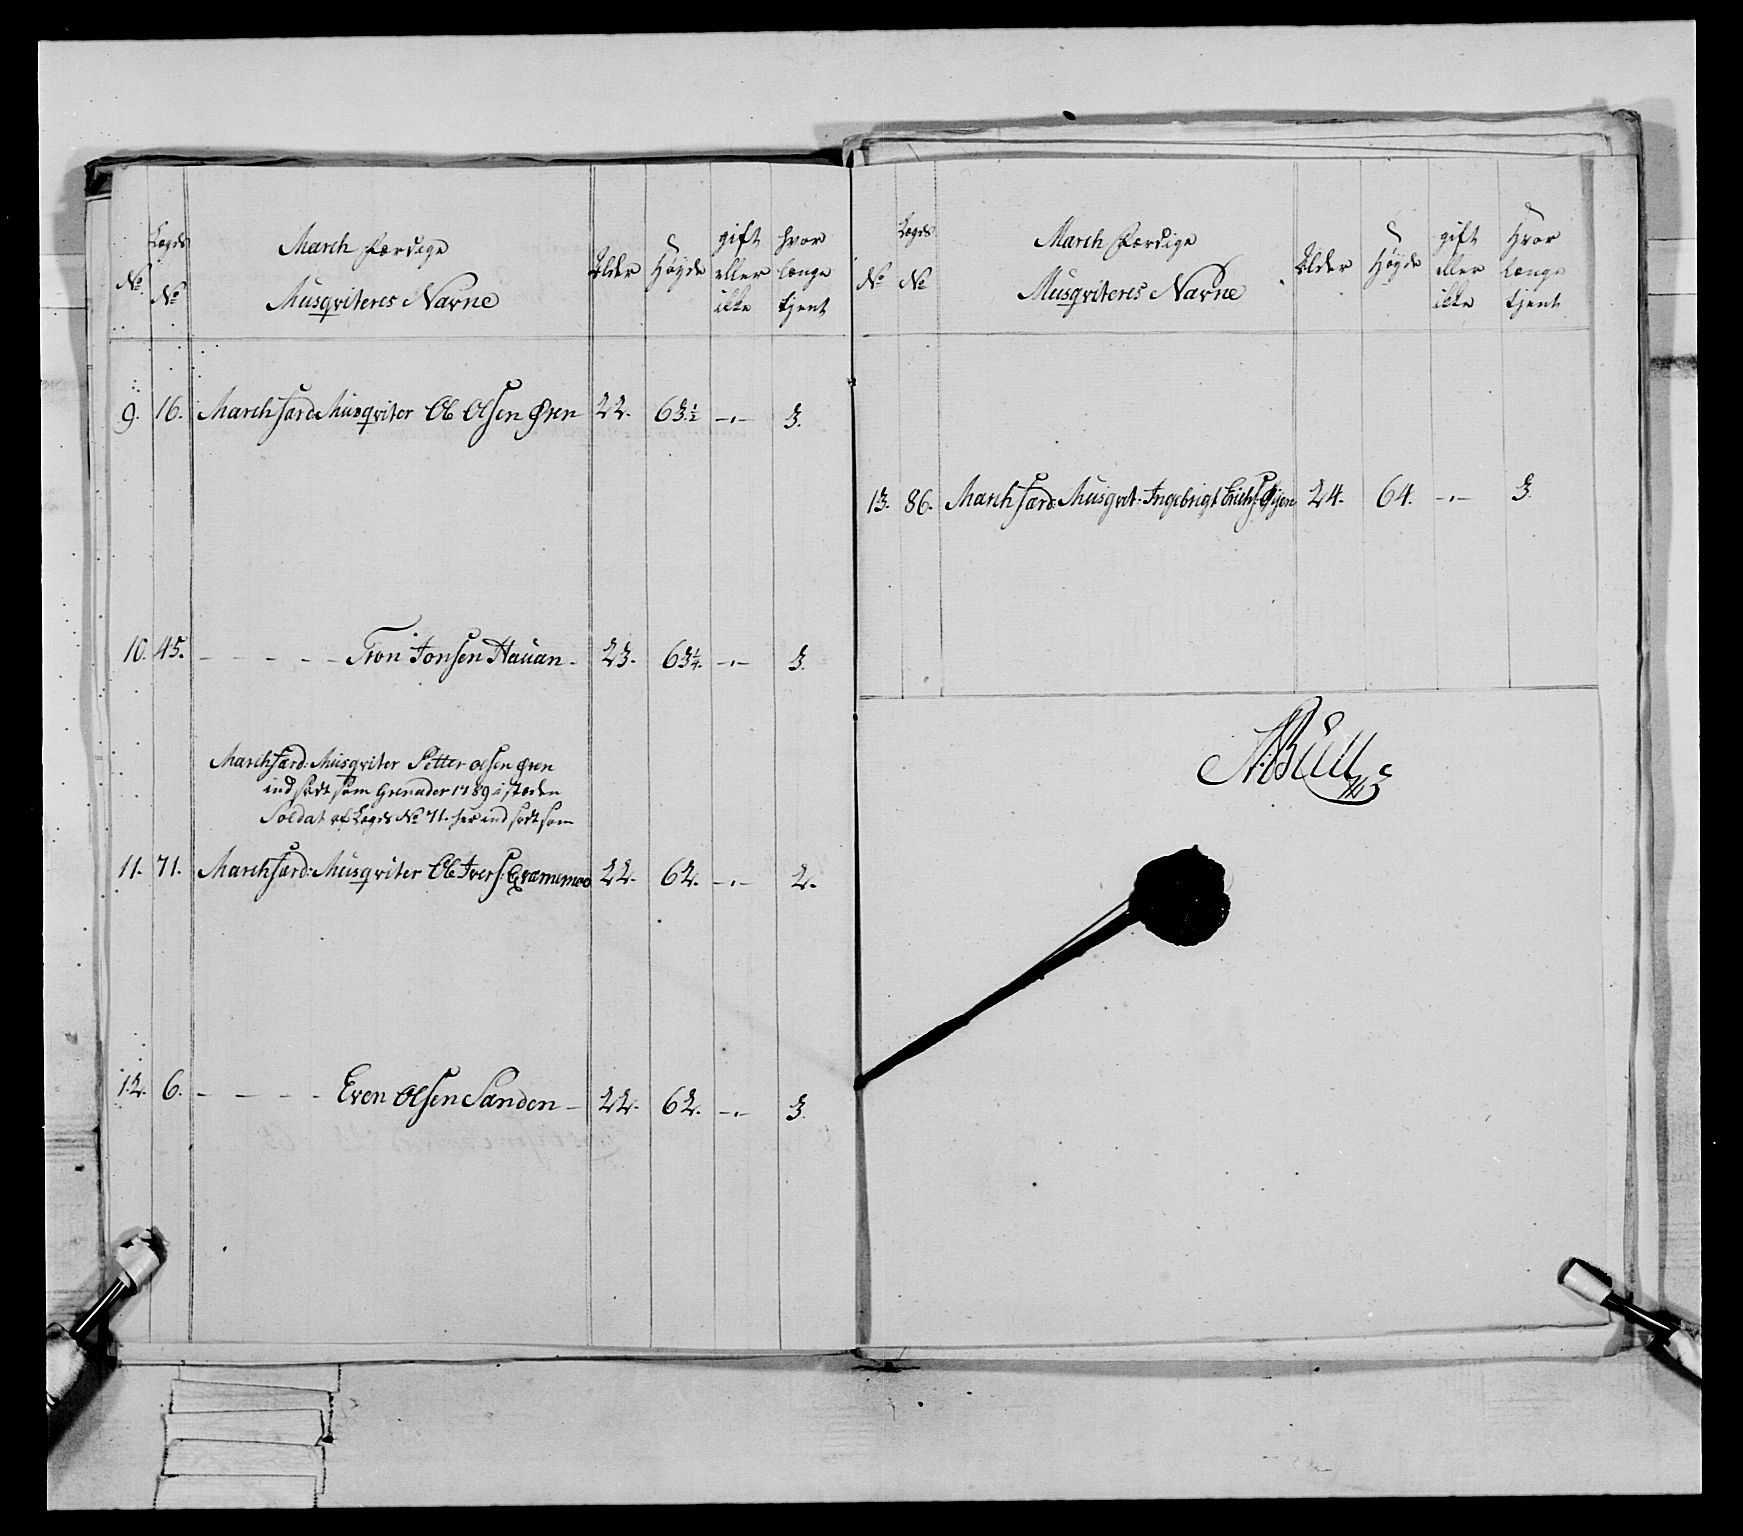 No. Legds No March færdige Musqviteres Navne Alder Høyde gift eller ikke hvor længe tjent
9. 16. March færd: Musqviter Ole Olsen Øren 22. 63 1/2 -"- 3.
10. 45. - - - - - Tron Jonsen Hauan - 23. 63 1/4. -"- 3.
March færd: Musqviter Petter Olsen Øren
ind sadt som Grenader 1789 i stæden
Soldat af Legds No 71. her ind sadt som
11. 71. March færd: Musqviter Ole Ivers: 22. 62. -"- 2.
12. 6. - - - - Even Olsen Sanden - 22. 62. -"- 3.
No Legds No March færdige Musqviteres Navne Alder Høyde gift eller ikke Hvor længe tjent
13. 86. March færd: Musqvit: Ingebrigt Erichs: Øyen 24. 64. -"- 3.
Bull